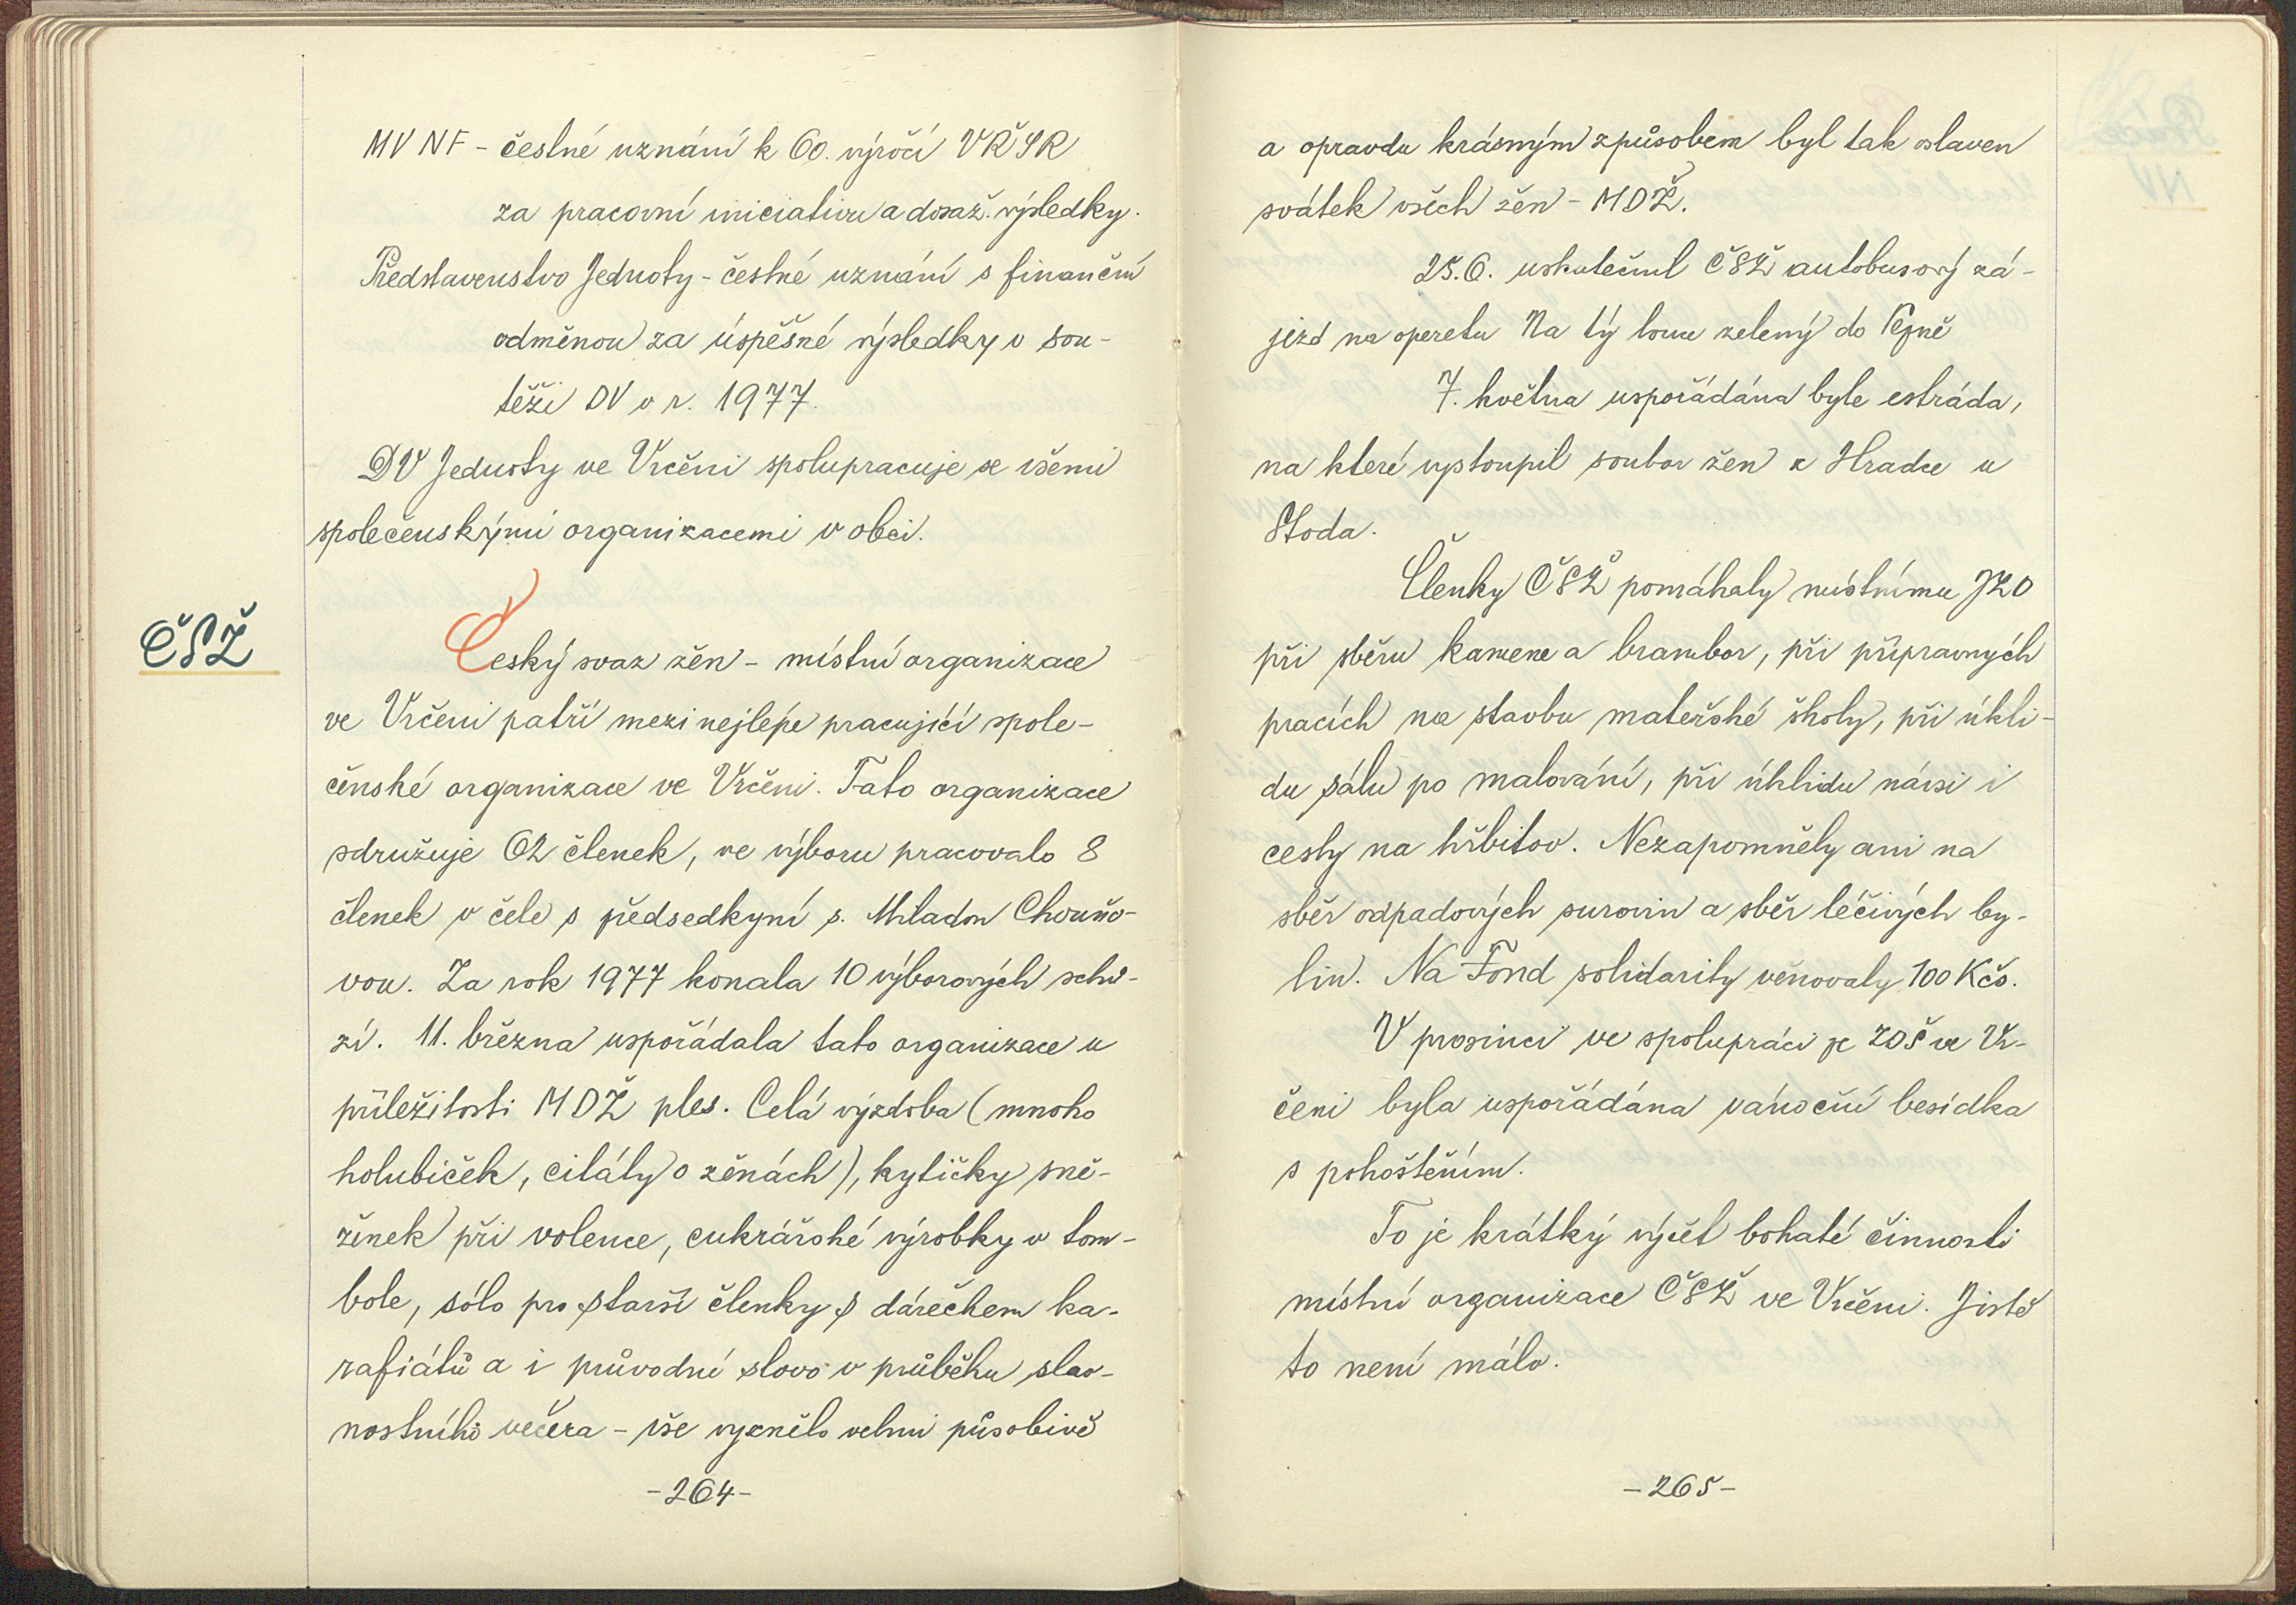 MV NF - čestné uznání k 60. výročí VŘSR
za pracovní iniciativu a dosaž. výsledky.
Představenstvo Jednoty - čestné uznání s finanční
odměnou za úspěšné výsledky v sou-
těži DV v r. 1977.
DV Jednoty ve Vrčeni spolupracuje se všemi
společenskými organizacemi v obci.
ČSŽ
Český svaz žen - místní organizace
ve Vrčeni patří mezi nejlépe pracující spole-
čenské organizace ve Vrčeni. Tato organizace
sdružuje 62 členek, ve výboru pracovalo 8
členek v čele s předsedkyní s. Miladou Chouňo-
vou. Za rok 1977 konala 10 výborových schů-
zí. 11. března uspořádala tato organizace u
příležitosti MDŽ ples. Celá výzdoba (mnoho
holubiček, citáty o ženách), kytičky sně-
ženek při volence, cukrářské výrobky v tom-
bole, sólo pro starší členky s dárečkem ka-
rafiátů a i průvodní slovo v průběhu slav-
nostního večera - vše vyznělo velmi působivě
- 264 -
a opravdu krásným způsobem byl tak oslaven
svátek všech žen - MDŽ.
25.6. uskutečnil ČSŽ autobusový zá-
jezd na operetu Na tý louce zelený do Plzně
7. května uspořádána byla estráda,
na které vystoupil soubor žen z Hradce u
Stoda.
Členky ČSŽ pomáhaly místnímu JZD
při sběru kamene a brambor, při přípravných
pracích na stavbu mateřské školy, při úkli-
du sálu po malování, při úklidu návsi i
cesty na hřbitov. Nezapomněly ani na
sběr odpadových surovin a sběr léčivých by-
lin. Na Fond solidarity věnovaly 100 Kčs.
V prosinci ve spolupráci se ZDŠ ve Vr-
čeni byla uspořádána vánoční besídka
s pohoštěním.
To je krátký výčet bohaté činnosti
místní organizace ČSŽ ve Vrčeni. Jistě
to není málo.
- 265 -